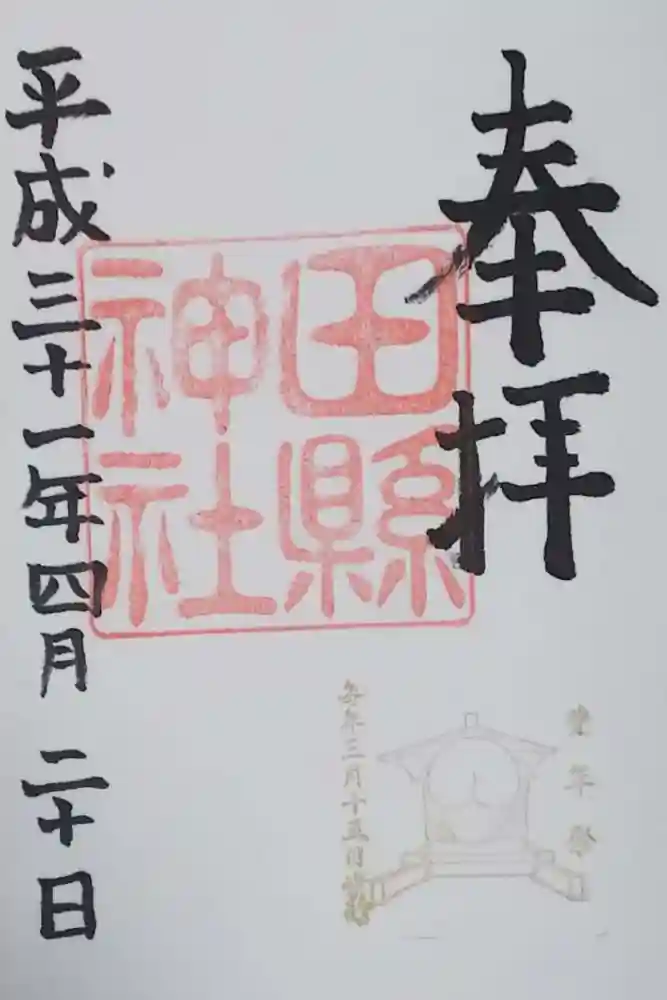 奉拝
田縣
神社
豊年祭
毎年三月十五日
平成三十一年四月二十日